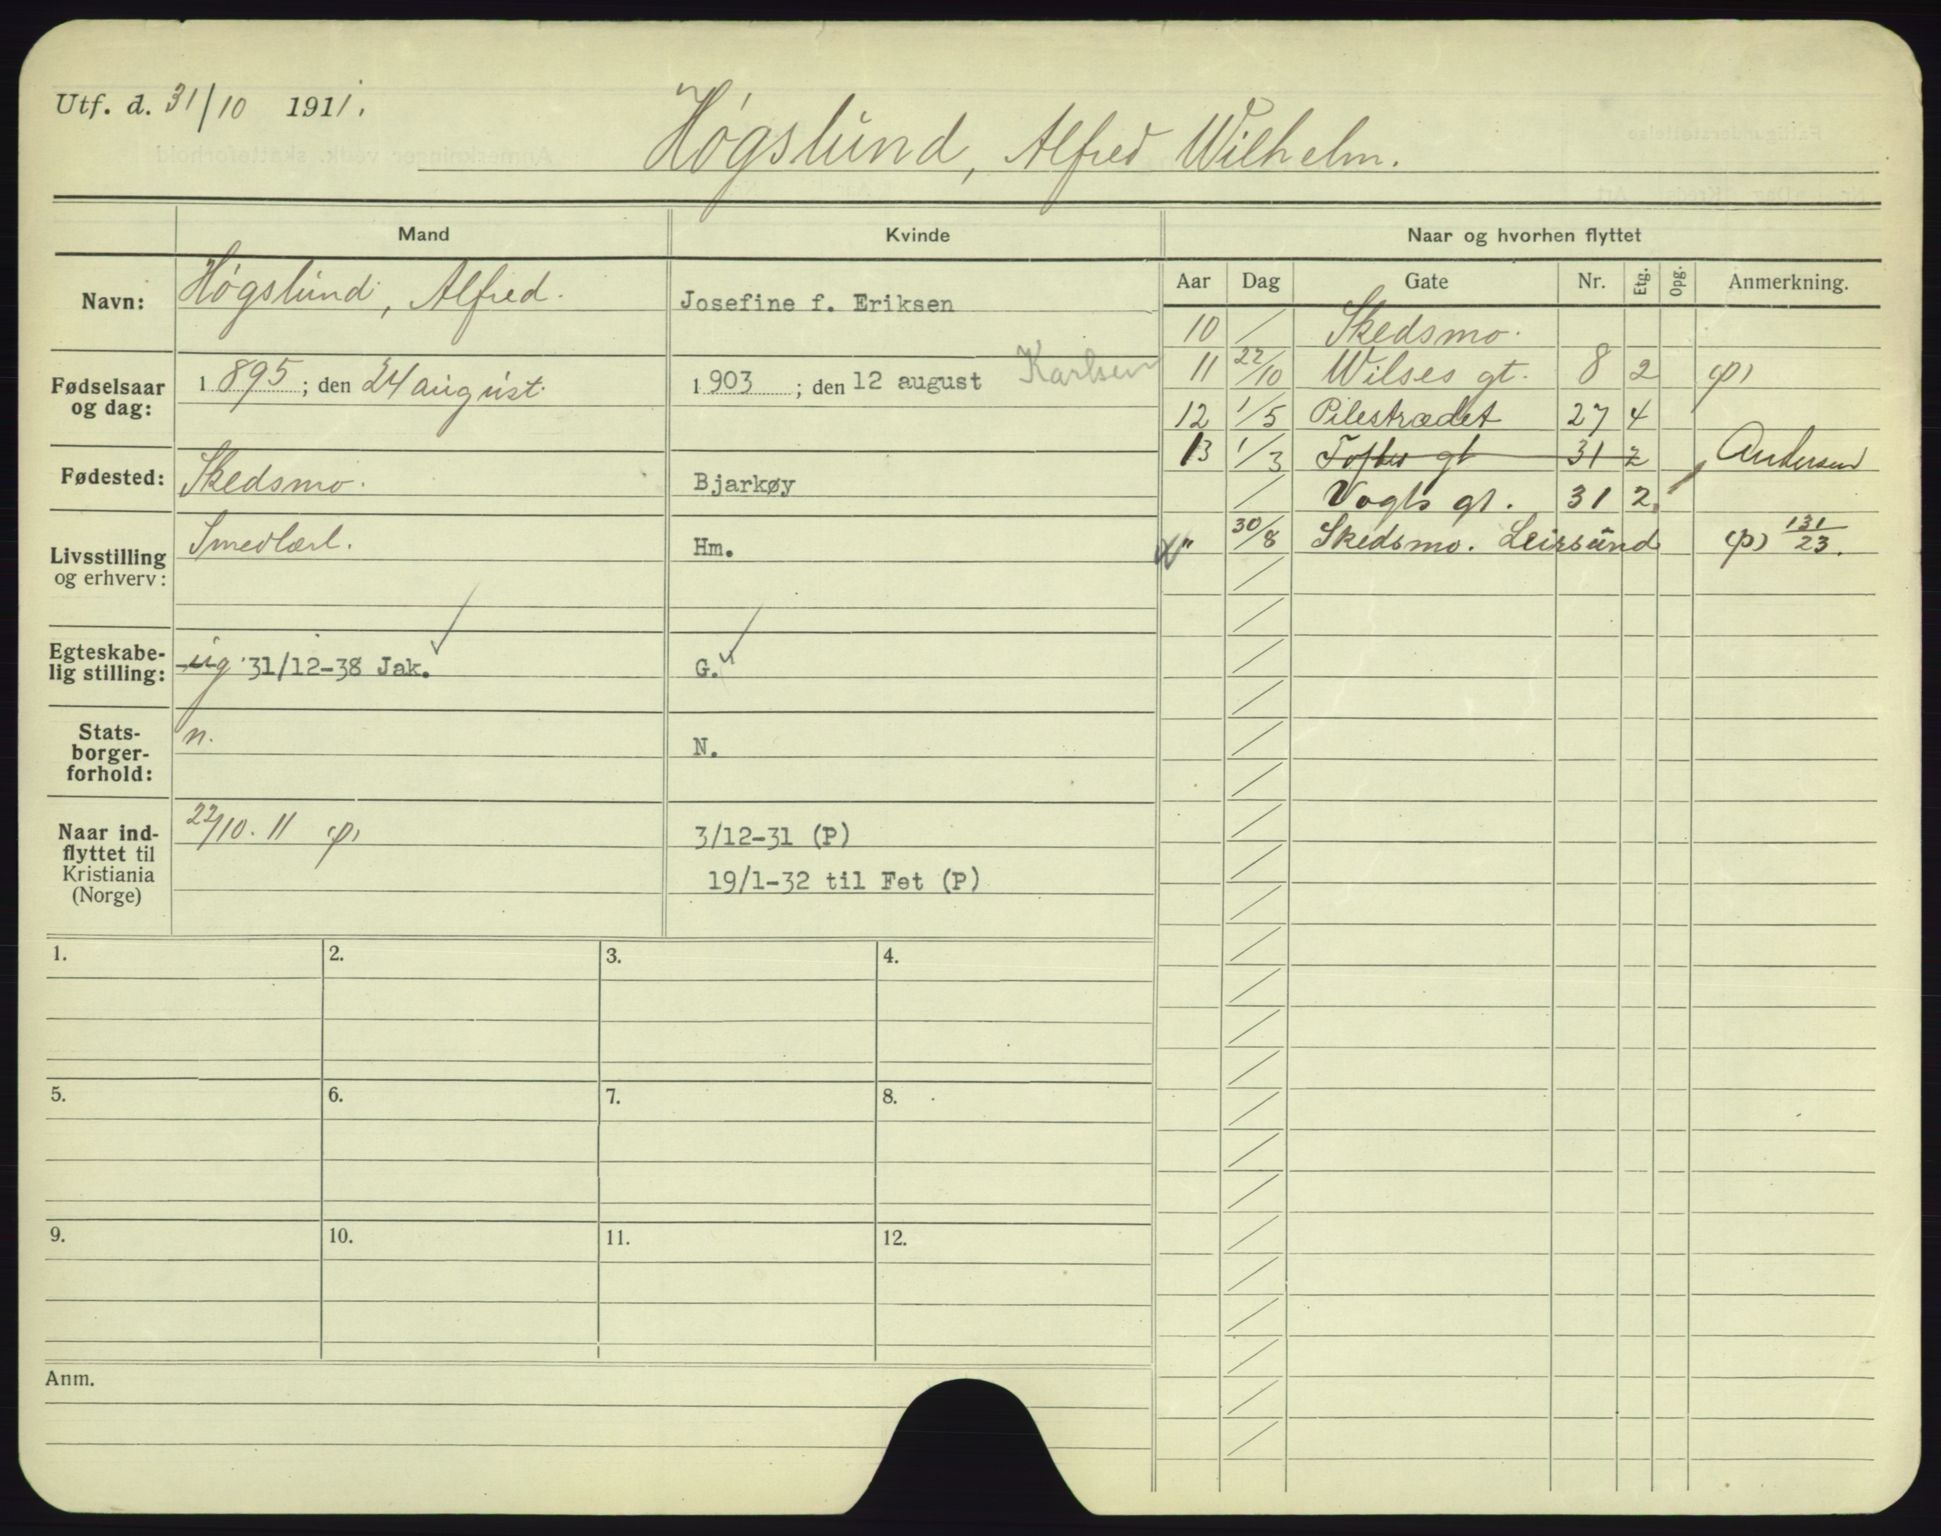 Utf. d. 31/10 1911.
Høgslund, Alfred Wilhelm.
Mand
Kvinde
Naar og hvorhen flyttet
Navn: Høgslund, Alfred.
Josefine f. Eriksen
Karlsen
Fødselsaar og dag: 1895; den 24 august.
1903; den 12 august
Fødested: Skedsmo.
Bjarkøy
Livsstilling og erhverv: Smedlærl.
Hm.
Egteskabelig stilling: ug 31/12-38 Jak.
G.
Statsborgerforhold: n.
N.
Naar indflyttet til Kristiania (Norge) 22/10. 11 (p)
3/12-31 (P)
19/1-32 til Fet (P)
Aar Dag Gate Nr. Etg. Opg. Anmerkning.
10 / Skedsmo.
11 22/10 Wilses gt. 8 2 (p)
12 1/5 Pilestrædet 27 4
13 1/3 Toftes gt 31 2 Andersen
/ Vogts gt. 31 2.
" 30/8 Skedsmo. Leirsund (p) 131/23.
1. 2. 3. 4.
5. 6. 7. 8.
9. 10. 11. 12.
Anm.